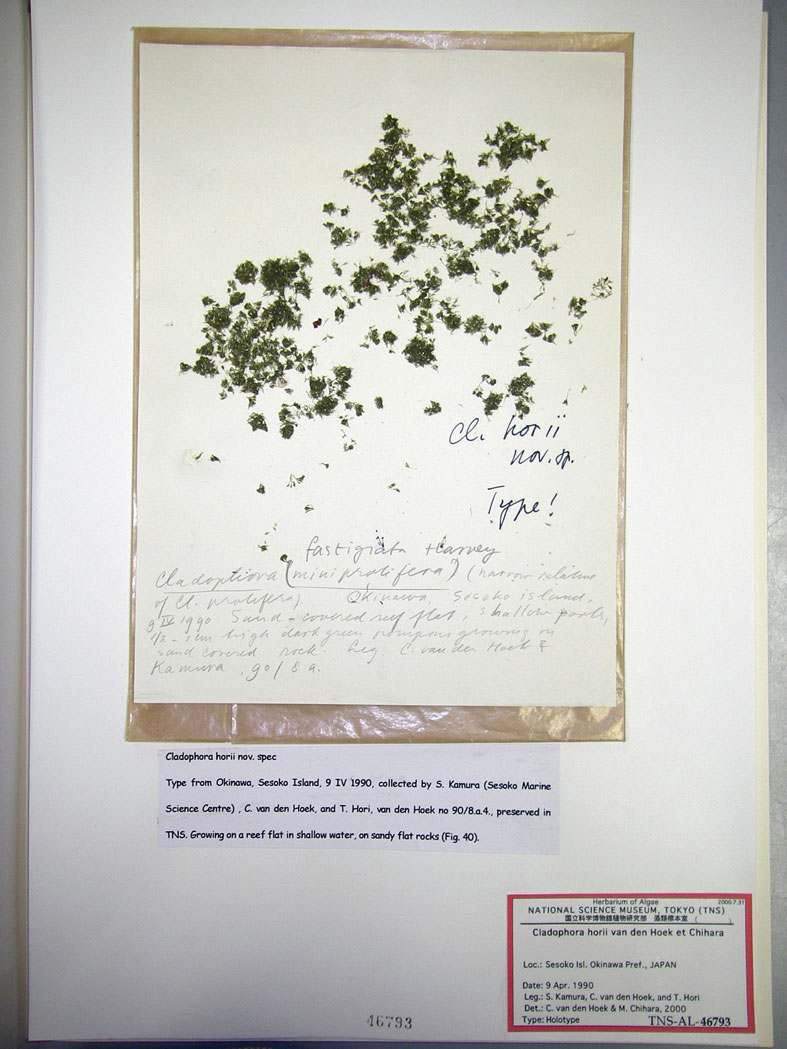 Cl. horii
nov. sp.
Type!
fastigiata Harvey
Cladophora (miniprolifera) (narrow relative
of Cl. prolifera). Okinawa, Sesoko island,
9 IV 1990 Sand-covered reef flat, shallow pools,
1/2-1cm high dark green pompons growing on
sand covered rock. Leg. C. van den Hoek &
Kamura 90/8a.
Cladophora horii nov. spec
Type from Okinawa, Sesoko Island, 9 IV 1990, collected by S. Kamura (Sesoko Marine
Science Centre) , C. van den Hoek, and T. Hori, van den Hoek no 90/8.a.4., preserved in
TNS. Growing on a reef flat in shallow water, on sandy flat rocks (Fig. 40).
Herbarium of Algae 2000.7.31
NATIONAL SCIENCE MUSEUM, TOKYO (TNS)
国立科学博物館植物研究部 藻類標本室 ( )
Cladophora horii van den Hoek et Chihara
Loc.: Sesoko Isl. Okinawa Pref., JAPAN
Date: 9 Apr. 1990
Leg.: S. Kamura, C. van den Hoek, and T. Hori
Det.: C. van den Hoek & M. Chihara, 2000
Type: Holotype TNS-AL-46793
46793